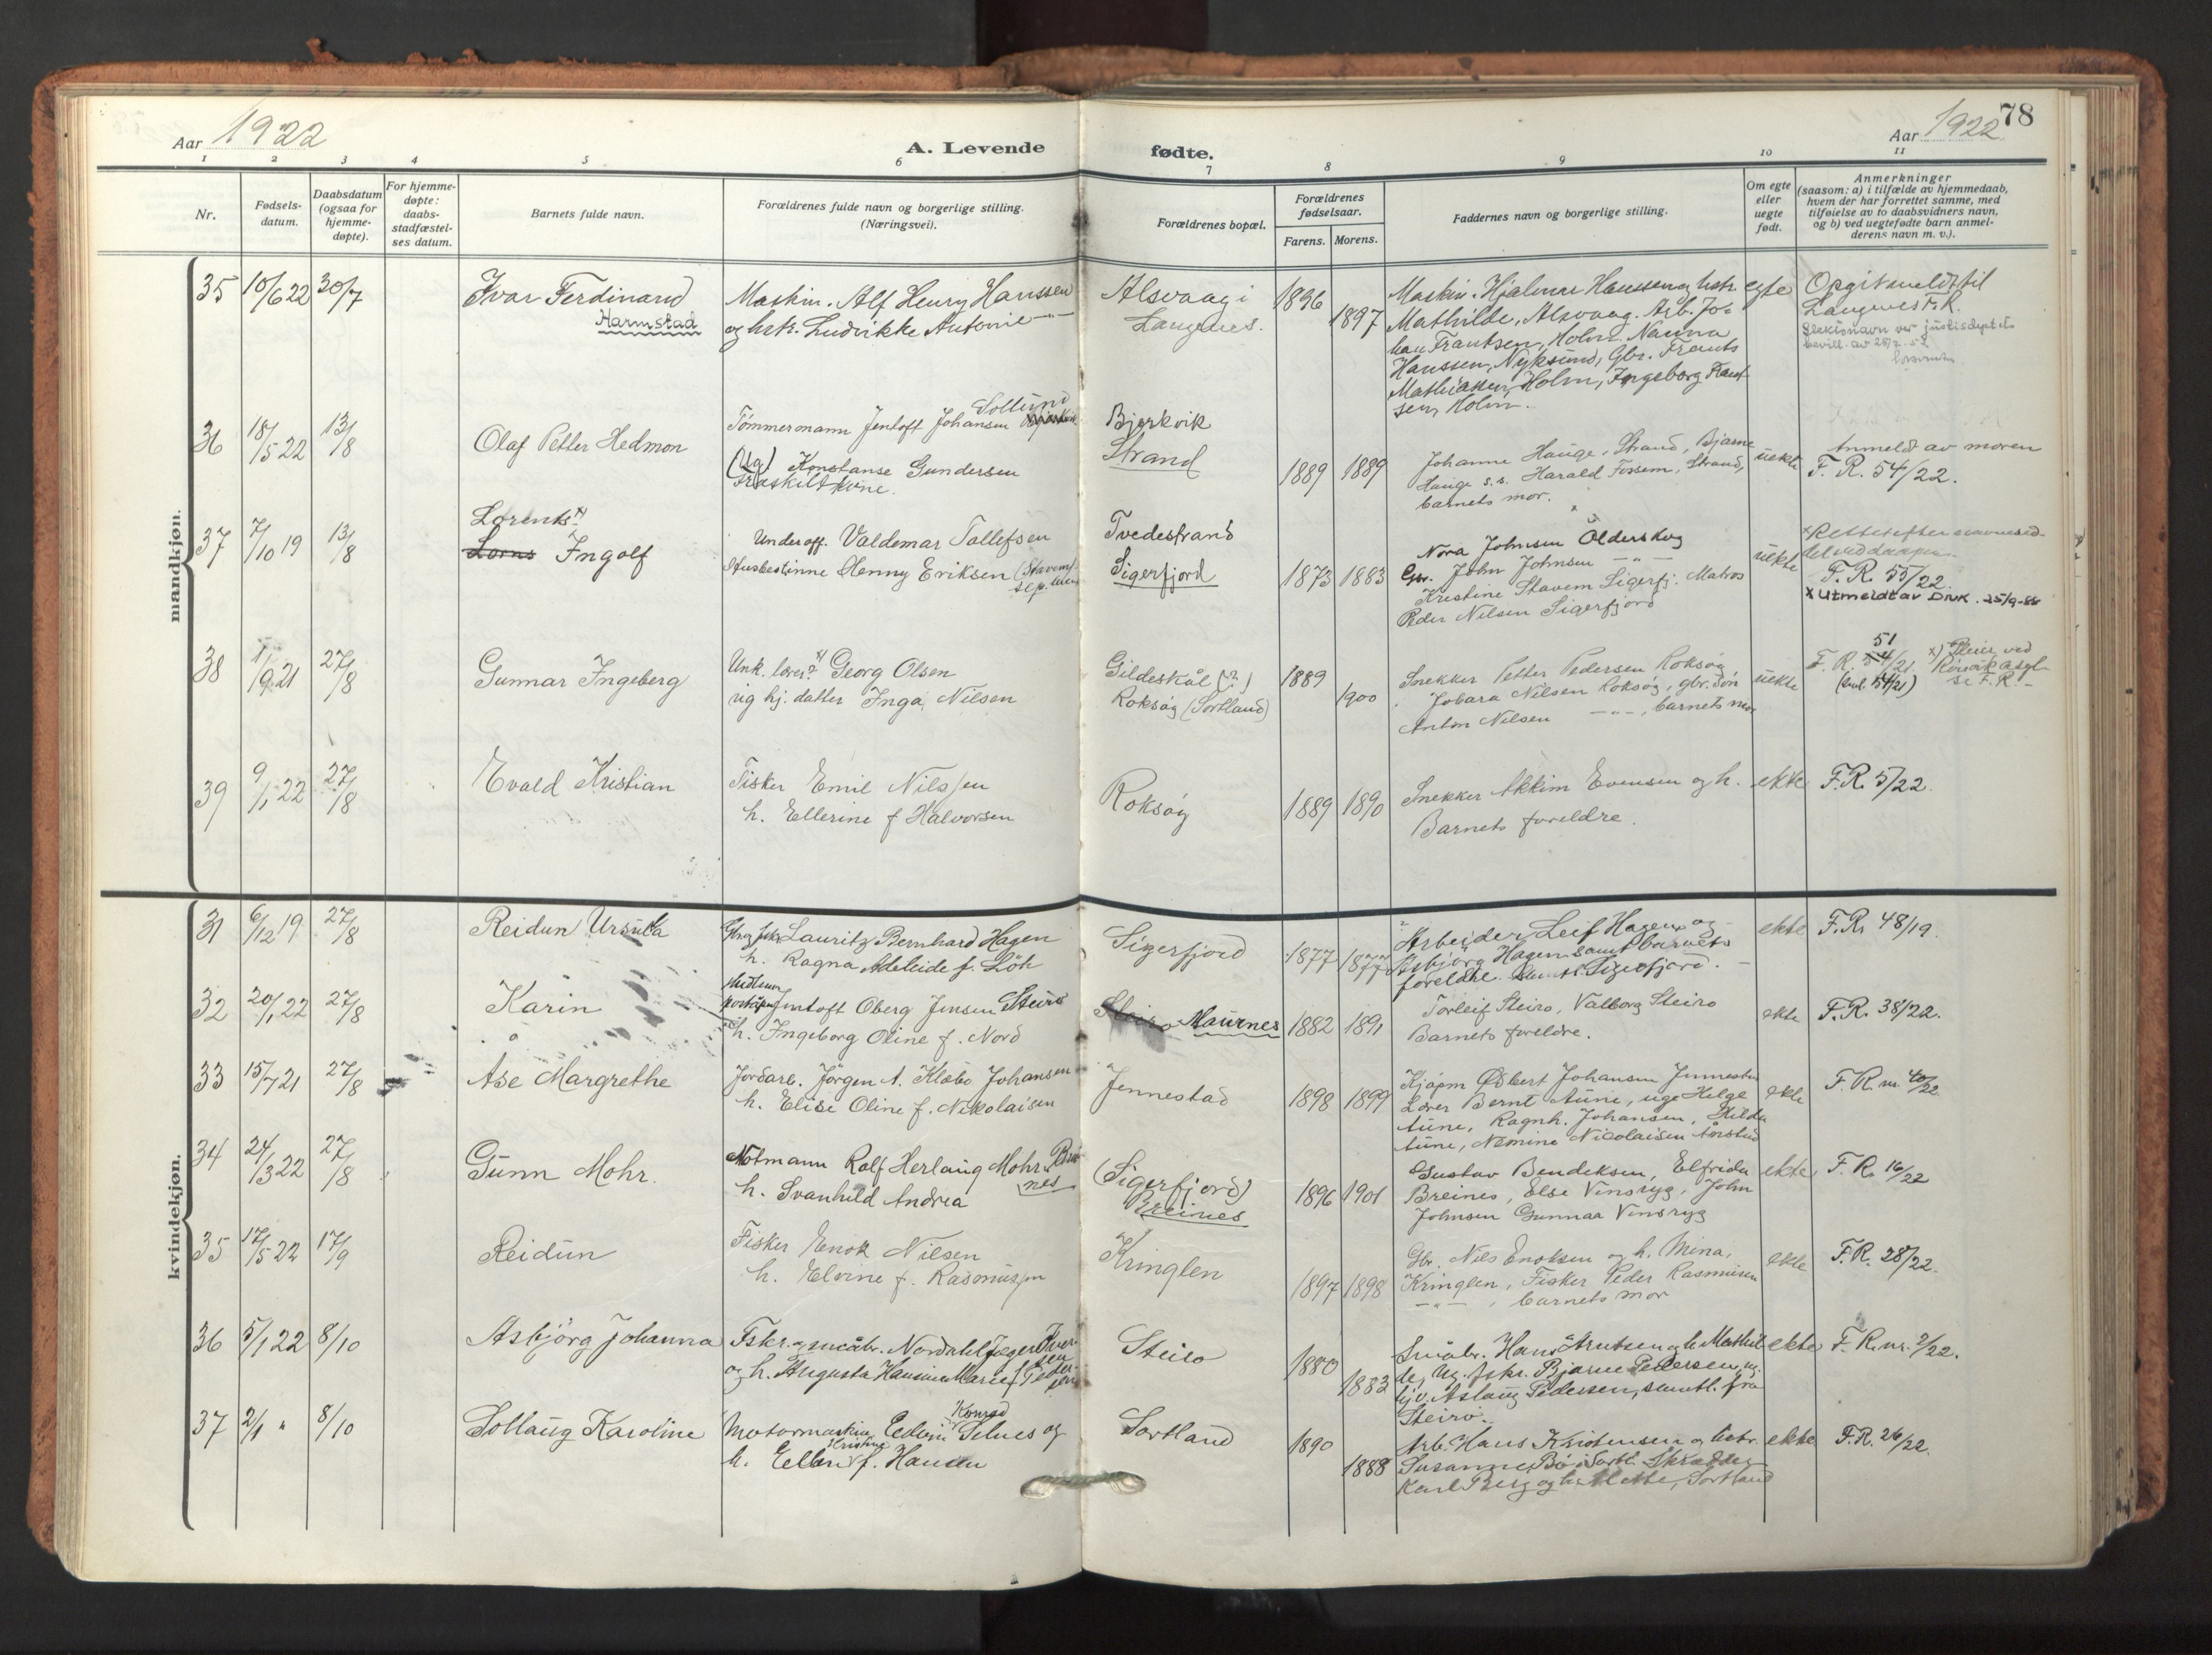 Aar 1922
A. Levende fødte.
Aar 1922
78
1 2 3 4 5 6 7 8 9 10 11
Nr.
Fødsels-
datum.
Daabsdatum
(ogsaa for
hjemme-
døpte).
For hjemme-
døpte:
daabs-
stadfæstel-
ses datum.
Barnets fulde navn.
Forældrenes fulde navn og borgerlige stilling.
(Næringsvei).
Forældrenes bopæl.
Forældrenes
fødselsaar.
Farens. Morens.
Faddernes navn og borgerlige stilling.
Om egte
eller
uegte
født.
Anmerkninger
(saasom: a) i tilfælde av hjemmedaab,
hvem der har forrettet samme, med
tilføielse av to daabsvidners navn,
og b) ved uegtefødte barn anmel-
derens navn m. v.).
mandkjøn.
35 10/6 22 30/7
Ivar Ferdinand
Harmstad
Maskin. Alf Henry Hanssen
og hstr. Ludvikke Antonie
Alsvaag i
Langenes.
1896 1897
Maskin. Hjalmar Hanssen og hstr.
Mathilde, Alsvaag. Arb. Jo-
han Frantsen, Holm. Nanna
Hanssen, Nyksund, Gbr. Frants
Mathiassen, Holm, Ingeborg Frant-
sen, Holm.
egte
Opgit meldt til
Langenes F.R.
Slektsnavn ver justisdeptets
bevill. av
36 18/5 22 13/8
Olaf Petter Hedmon
Sollund
Tömmermann Jentoft Johansen
(Ug) Konstanse Gundersen
fraskilt kone.
Bjerkvik
Strand
1889 1889
Johanne Hauge, Strand, Bjarne
Hauge s.s. Harald Fossem, Strand,
barnets mor.
uekte
Anmeldt av moren
F. R. 54/22.
37 7/10 19 13/8
Lorents x)
Lorns Ingolf
Underoff. Valdemar Tollefsen
Husbestinne Henny Eriksen (Stavem)
Tvedestrand
Sigerfjord
1873 1883
Nora Johnsen Ölderskog
Gbr. John Johnsen —"—
Kristine Stavem Sigerfj. Matros
Peder Nilsen Sigerfjord
uekte
x Rettet efter navnesed-
del ved daapen.
F. R. 55/22.
x Utmeldt av Dnk. 25/9-88
38 1/9 21 27/8
Gunnar Ingeberg
Unk. lærer? x) Georg Olsen
ug hj. datter Inga Nilsen
Gildeskål (?)
Roksöy (Sortland)
1889 1900
Snekker Petter Pedersen Roksöy,
Jobara Nilsen Roksöy, gbr. sön
Anton Nilsen —"—, barnets mor
uekte
51
F. R. 54/21.
39 9/1 22 27/8
Evald Kristian
Fisker Emil Nilssen
h. Ellerine f Halvorsen
Roksöy
1889 1890
Snekker Akkim Evensen og h.
Barnets foreldre.
ekte
F.R. 5/22.
kvindekjøn.
31 6/12 19 27/8
Reidun Ursula
Gbr og fskr Lauritz Bernhard Hagen
h. Ragna Adeleide f. Löh
Sigerfjord
1877 1877
Arbeider Leif Hagen og
Asbjörg Hagen samt barnets
foreldre. Samtl. Sigerfjord.
ekte
F. R. 48/19.
32 20/1 22 27/8
Karin
Jentoft Oberg Jensen Steiro
h. Ingeborg Oline f. Nord
Steiro Maurnes
1882 1891
Torleif Steiro, Valborg Steiro
Barnets foreldre.
ekte
F. R. 38/22.
33 15/7 21 27/8
Åse Margrethe
Jordarb. Jörgen A. Klæbo Johansen
h. Elise Oline f. Nikolaisen
Jennestad
1898 1899
Kjöpm Osbert Johansen Jennestad
Lærer Bernt Aune, uge Helge
Aune, Ragnh. Johansen, Hilda
Aune, Nemine Nicolaisen Ånstad
ekte
F. R. nr. 40/22
34 24/3 22 27/8
Gunn Mohr.
Notmann Rolf Herlaug Mohr Brei-
nes
h. Svanhild Andrea
(Sigerfjord)
Breines
1896 1901
Gustav Bendiksen, Elfrida
Breines, Else Vinsryg, John
Johnsen Gunnar Vinsryg
ekte
F. R. 16/22
35 17/5 22 17/9
Reidun
Fisker Enok Nilsen
h. Elvine f. Rasmussen
Kringlen
1897 1898
Gbr. Nils Enoksen og h. Mina,
Kringlen, Fisker Peder Rasmusen
—"—, barnets mor
ekte
F. R. 28/22.
36 5/1 22 8/10
Asbjörg Johanna
Fskr. og småbr. Nordahl Jæger Iver-
sen
og h. Augusta Hansine Marie f. Peder-
sen
Steiro
1880 1883
Småbr. Hans Arntsen og h. Mathil-
de, Ug. fskr. Bjarne Pedersen, ug.
hjv. Aslaug Pedersen, samtl. fra
Steiro.
ekte
F. R. nr. 2/22.
37 2/1 " 8/10
Sollaug Karoline
Motormaskin. Edvin Konrad Selnes og
h. Ellen Kristine f. Hansen
Sortland
1890 1888
Arb. Hans Kristensen og hstr.
Susanne, Bö i Sortl. Skrædder
Karl Berg og h. Mette, Sortland
ekte
F. R. 26/22.